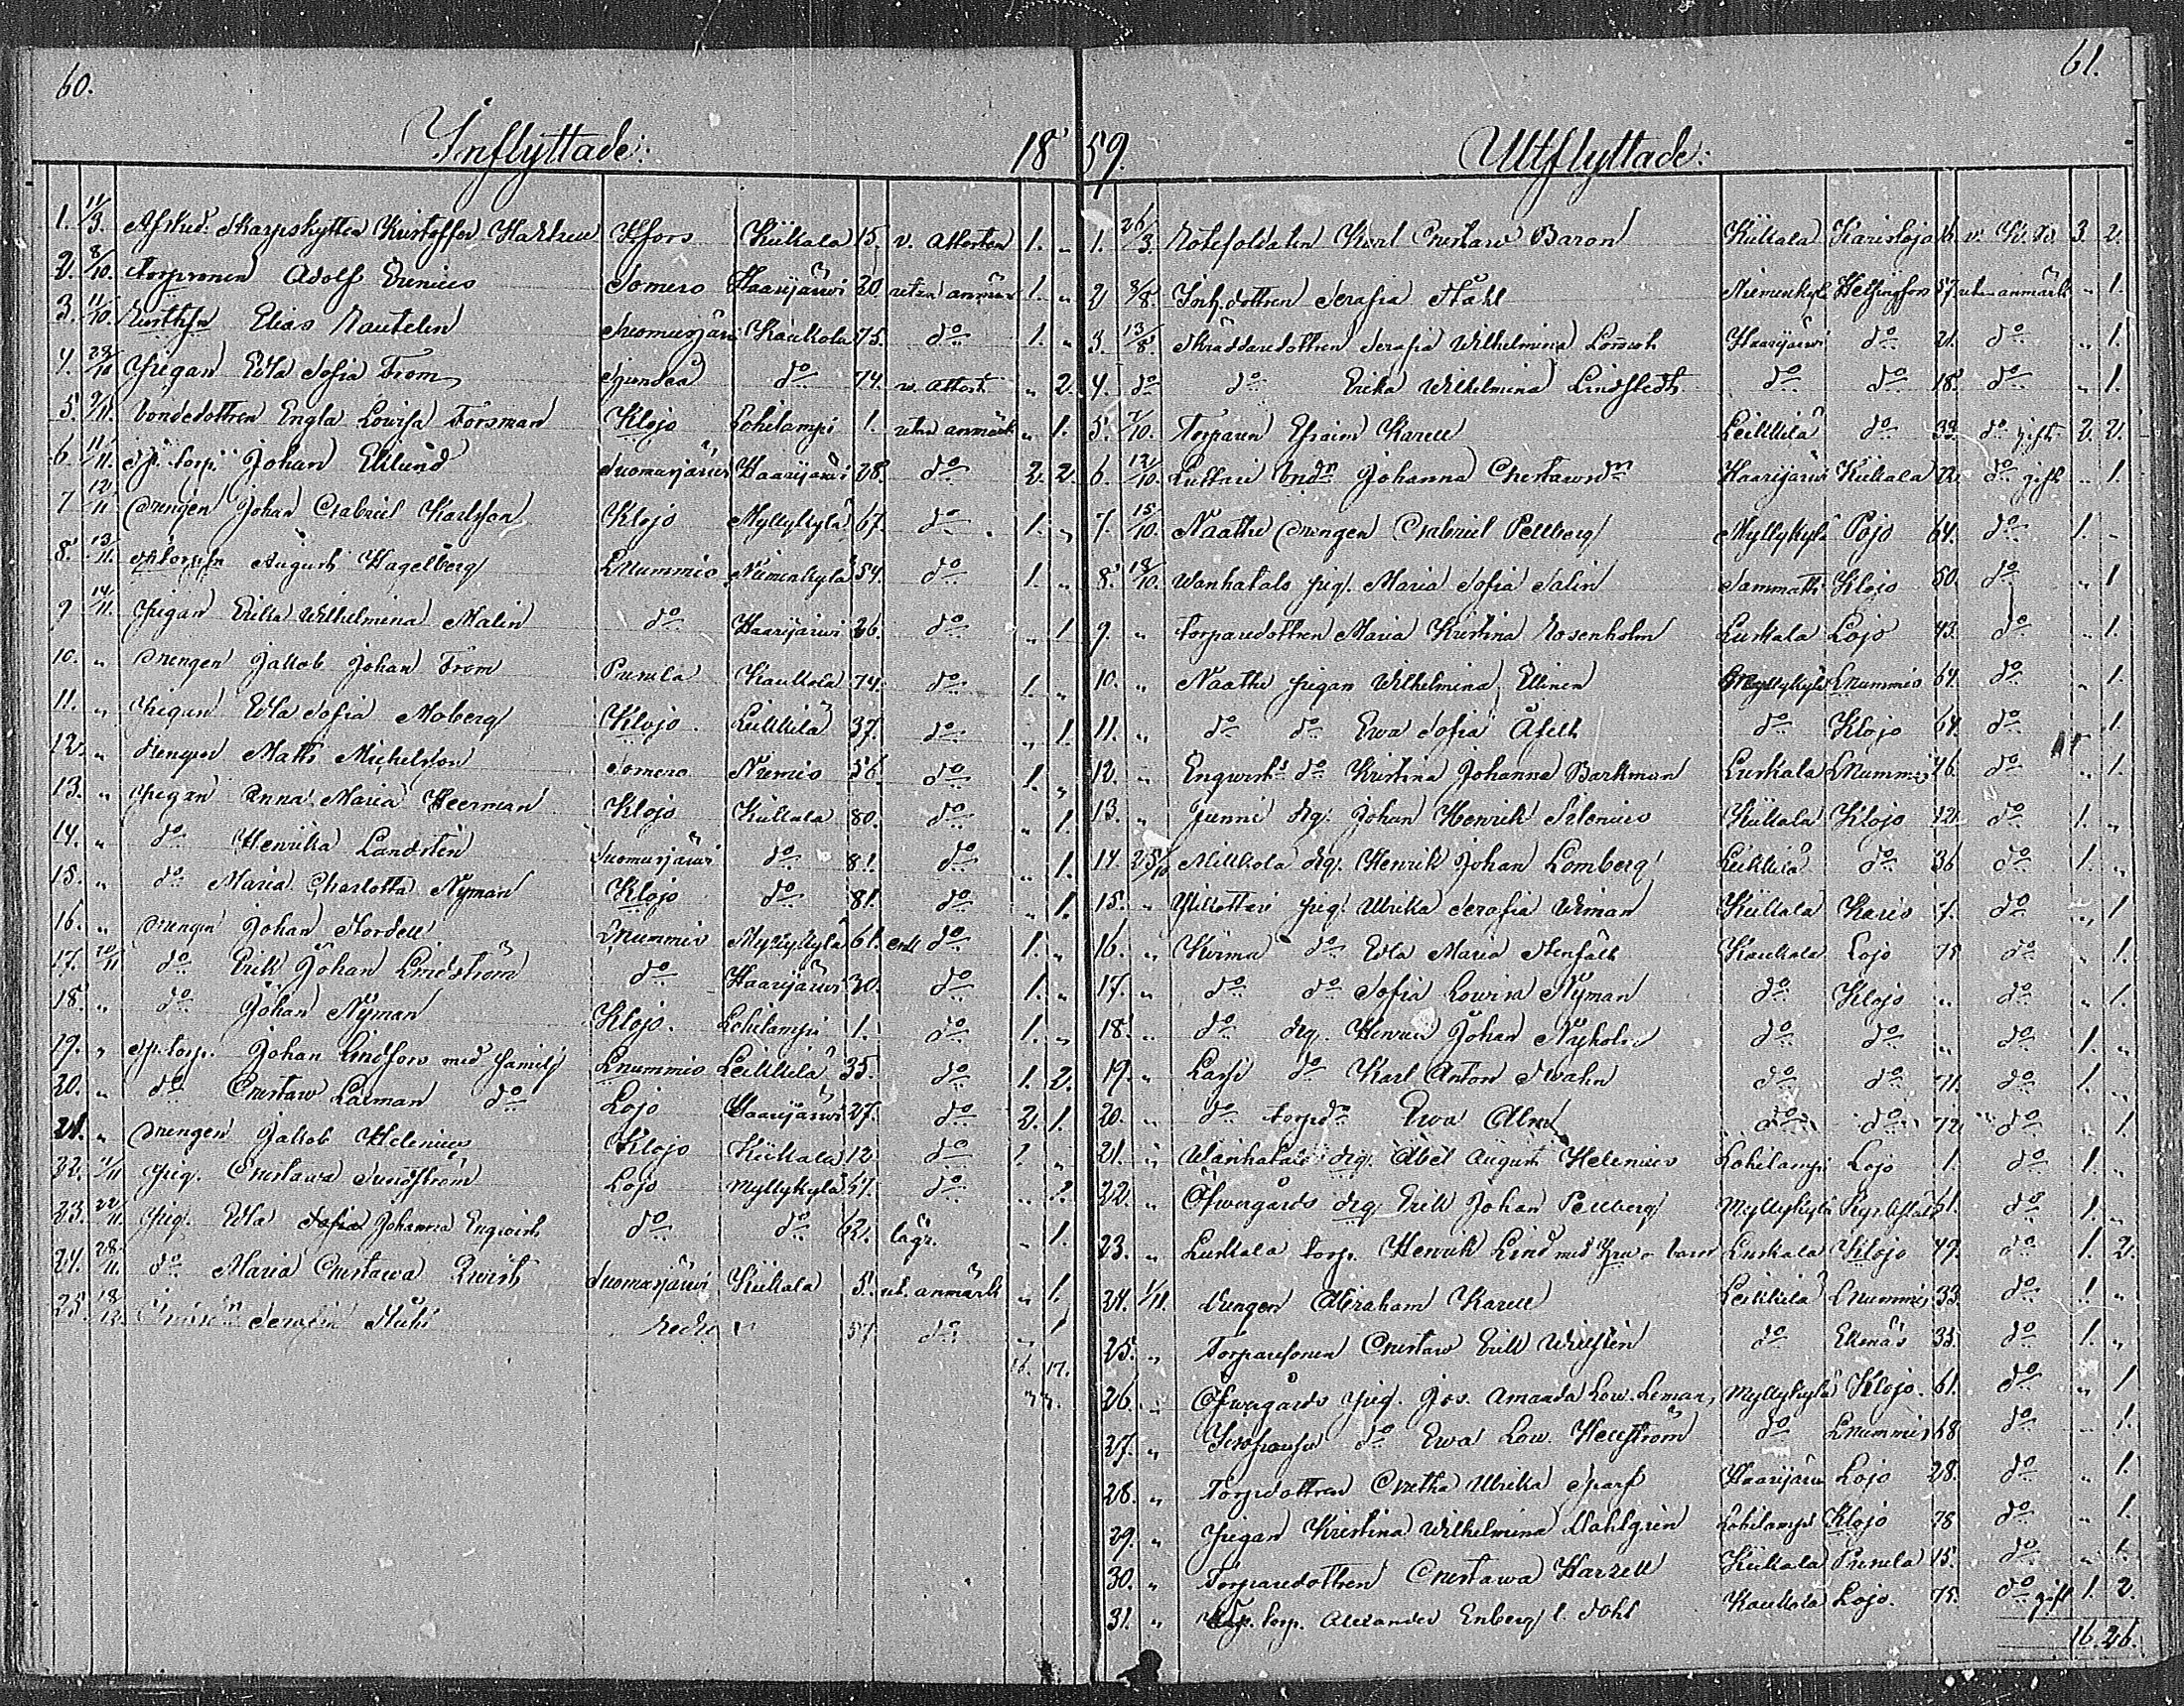 60.
Inflyttade: 18
1. 11/3. Afsked. Skarpskytten Kristoffer Hfors Kiikala 15. v. Attesten 1. „
2. 8/10. Torparsonen Adolf Somero Haarijärwi 20 utan anmärk 1. „
3. 11/10. Elias Rautelin Suomusjärwi Kaukola 75. do 1. „
4. 28/10 Pigan Edla Sofia From Sjundeå do 74. v. Attest „ 2.
5. 9/11. bondedottren Engla Lowisa Forsman Klojo Lohilampi 1. utan anmärk „ 1.
6. 11/11. Sp. torp. Johan Eklund Suomusjärwi Haarijärwi 28. do 2. 2.
7 12/11 Drengen Johan Gabriel Karlsson Klojo Myllykylä 67. do 1. „
8. 13/11. August Hagelberg Lnummis Niemenkylä 54. do 1. „
9 14/11. Pigan Erika Wilhelmina Malin do Haarijärwi 26. do „ 1
10. „ Drengen Jakob Johan From Pusula Kaukola 74. do 1. „
11. „ Pigan Edla Sofia Moberg Klojo Leikkilä 37. do „ 1.
12. „ Drengen Matts Michelsson Somero 56. do 1. „
13. „ Pigan Anna Maria Heerman Klojo Kiikala 80. do „ 1.
14. „ do Henrika Landstén Suomusjärwi do 81. do „ 1.
15. „ do Maria Charlotta Nyman Klojo do 81. do „ 1.
16. „ Drengen Johan Nordell Lnummis Myllykylä 61. enl do 1. „
17. 20/11 do Erik Johan Lindström do Haarijärwi 30. do 1. „
18. „ do Johan Nyman Klojo. Lohilampi 1. do 1. „
19. „ Sp. torp. Johan Lindfors med familj Lnummis Leikkilä 35. do 1. 2.
20. „ do Gustaw Laiman do Lojo Haarijärwi 27. do 2. 1.
21. „ Drengen Jakob Helenius Klojo Kiikala 12. do 1. „
22. Pig. Gustawa Sundström Lojo Myllykylä 57. do
23. 22/11. Pig. Edla Sofia Johanna Engwist do do 62. lägr. „ 1.
24. 28/11. do Maria Gustawa Qwist Suomusjärwi Kiikala 5. ut. anmärk „ 1.
25. 57. do „ 1
16. 17.
33.
61.
59. Utflyttade:
1. 26/3. Rotesoldaten Karl Gustaw Baron Kiikala Karislojo 3. 2.
2 8/8. Inh. dottren Serafia Ståhl Niemenkylä Helsingfors 57. utan anmärk „ 1.
3 13/8. Skräddaredottren Serafia Wilhelmina Haarijärwi do 21. do „ 1.
4. do do Erika Wilhelmina Lindstedt do do 18. do „ 1.
5. 7/10. Torparen Efraim Karell Leikkilä do 33. do gift 2. 2.
6 12/10. Luttari Johanna Gustawsdr Haarijärwi Kiikala 22. do gift „ 1.
7. 15/10. Naathi Drengen Gabriel Pellberg Myllykylä Pojo 64. do 1. „
8. 18/10. Wanhatalo pig. Maria Sofia Salin Sammatti Klojo 50. do „ 1
9. „ Torparedottren Maria Kristina Rosenholm Luskala Lojo 43. do „ 1.
10. „ Naathi Pigan Wilhelmina Ellinen Myllykylä Lnummis 64. do „ 1
11. „ do do Ewa Sofia Åfelt do Klojo 64. do „ 1.
12. „ Engwists do Kristina Johanna Backman Luskala Lnummis 46. do „ 1.
13. „ Junni drg. Johan Henrik Silenius Kiikala Klojo 12. do 1. „
14. 25/10 Mikkola drg. Henrik Johan Lomberg Leikkilä do 36 do 1. „
15. „ pig. Ulrika Serafia Wiman Kiikala Karis 7. do „ 1
16. „ Kirma do Edla Maria Stenfält Kaukola Lojo 75 do „ 1.
17. „ do do Sofia Lowisa Nyman do Klojo „ do „ 1.
18. „ do drg. Henric Johan Nyholm do do „ do 1. „
19. „ Lassi do Karl Anton Swahn do do 71. do 1. „
20. „ do torpdr Ewa Alm do do 72 do „ 1.
21. „ Wanhatalo drg. Abel August Helenius Lohilampi Lojo 1. do 1. „
22. „ Öfwergårds drg. Erik Johan Pellberg Myllykylä 61. do 1. „
23. „ Luskala torp. Henrik Lind med hru o barn Luskala Klojo 49. do 1. 2.
24. 1/11. Drengen Abraham Karell Leikkilä Lnummis 33. do 1. „
25. „ Torparesonen Gustaw Erik do Ekenäs 35. do 1. „
26. „ Öfwergårds pig. Jos. Amanda Low. Leman Myllykylä Klojo. 61. do „ 1
27. „ do Ewa Low. Hellström do Lnummis 68 do „ 1.
28. „ Torpdottren Gretha Ulrika Sparf Haarijärwi Lojo 28. do „ 1.
29. „ Pigan Kristina Wilhelmina Dahlgren Lohilampi Klojo 78 do „ 1.
30. „ Torparedottren Gustawa Harzell Kiikala Pusula 15. do „ 1.
31. „ torp. Alexander Enberg Kaukola Lojo. 75. do gift 1. 2
16. 26.